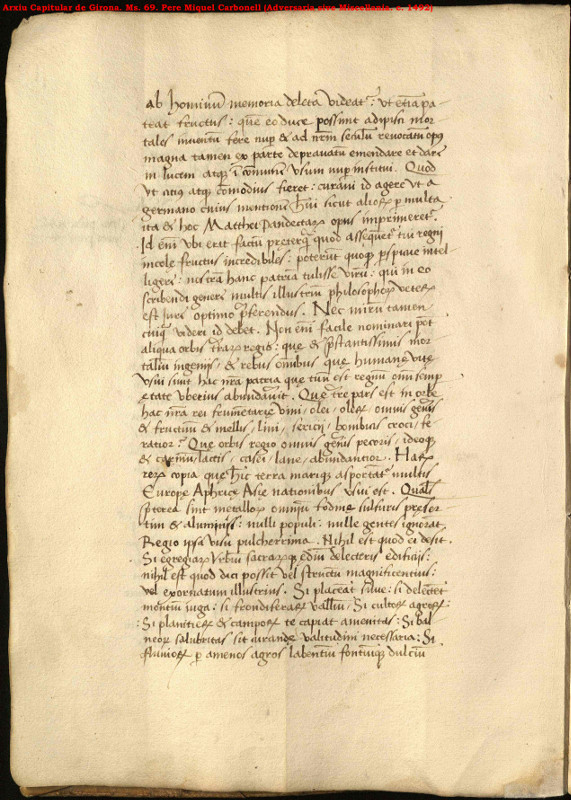 Arxiu Capitular de Girona. Ms. 69. Pere Miquel Carbonell (Adversaria sive Miscellania. c. 1492)
ab hominū memoria deleta videatʳ: vt etiā pa-
teat fructus: quē eo duce possint adipisci mor-
tales inuentū fere nup & ad nrm̄ seculū reuocatū opꝰ
magna tamen ex parte deprauatū emendare et dare
in lucem atqꝫ ī comunē vsum nup institui. Quod
vt citiꝰ atqꝫ comodius fieret: curaui id agere vt a
germano cuius mentionē hui sicut alioꝝ p multa
ita & hoc Matthei Pandectarꝫ opus imprimeret.
Id enī vbi erit factū preterqꝫ quod assequētʳ tui regni
incole fructus incredibiles: poterūt quoqꝫ pspicue intel-
ligere: nostram hanc patriā tulisse virū: qui in eo
scribendi genere multis illustriū philosophoꝝ veteꝝ
est iure optimo p̄ferendus. Nec mirū tamen
cuiqꝫ videri id debet. Non enī facile nominari pot
aliqua orbis terraꝝ regio: que & p̄stantissimis mor-
taliū ingeniis, & rebus omībus que humanę vitę
vsui sunt hac nr̄a patria quę tum est regnū omī semp
etate vberius abundauit. Que tre pars est in orbe
hac nr̄a rei frumētarię vini, olei, oleꝝ omnis genīs
& fructuū & mellis, lini, sericij, bombicis croci, fe-
ratior? Que orbis regio omnis genīs pecoris, ideoqꝫ
& carniū, lactis, casei, lane, abundancior. Haꝝ
rerꝫ copia que hic terra mariqꝫ asportatʳ multis
Europe Aphricę Asię nationibus vsui est. Qualīs
p̄terea sint metalloꝝ omniū fodinę sulfuris pręser-
tim & aluminis: nulli populi: nulle gentes ignorāt.
Regio ipsa visu pulcherrima. Nihil est quod ei desit.
Si egregiaꝝ vrbiū sacraꝝqꝫ ediū delecteris edificijs:
nihil est quod dici possit vel structū magnificentius:
vel exornatum illustrius. Si placeāt silue: si delectēt
montiū iuga: si frondiferaꝝ valliū, Si cultoꝝ agroꝝ:
Si planitieꝝ & campoꝝ te capiat amenitas: Si bal-
neoꝝ salubritas sit curande valitudini necessaria: Si
fluuioꝝ p amenos agros labentiū fontiūqꝫ dulciū